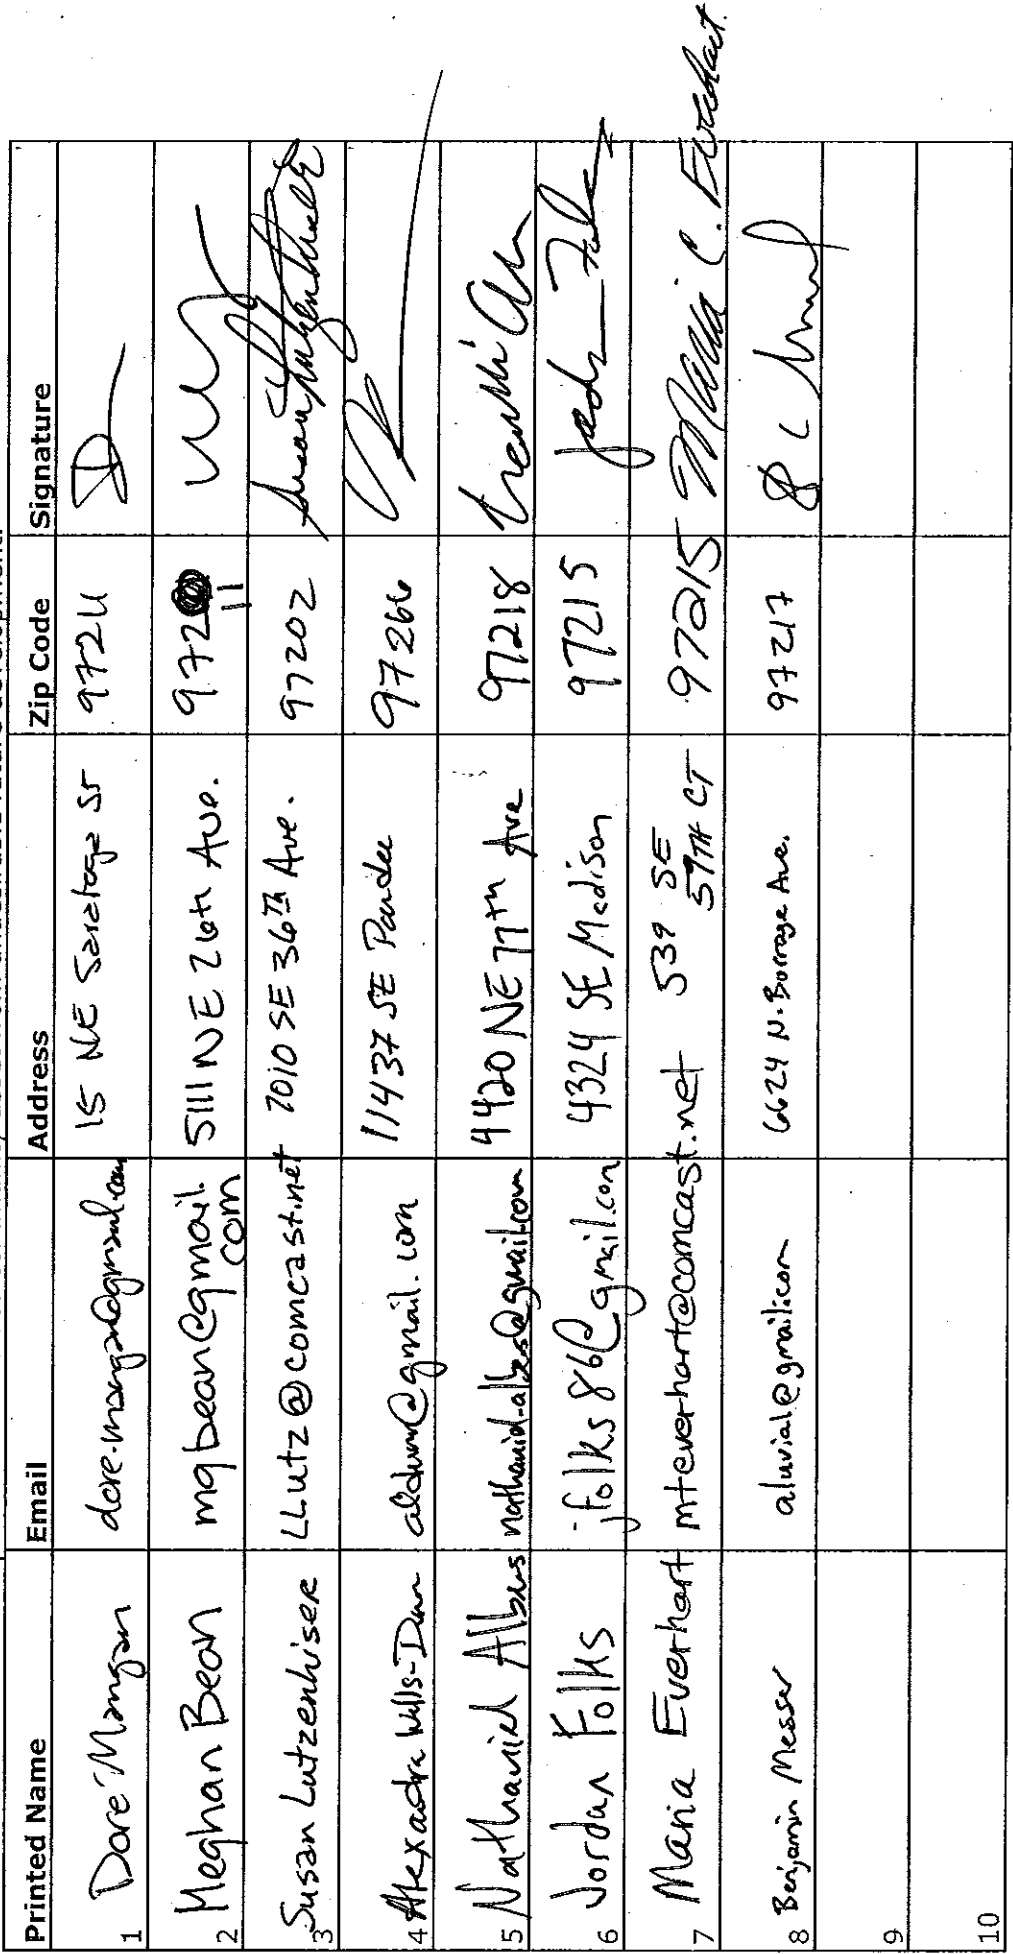 Printed Name Email Address Zip Code Signature
1 Dore Mangan dore.mangan@gmail.com 15 NE Saratoga St 97211
2 Meghan Bean mgbean@gmail.com 5111 NE 26th Ave. 972 11
3 Susan Lutzenhiser LLutz@comcast.net 7010 SE 36TH Ave. 97202
4 Alexadra Wills-Dunn @gmail.com 11437 SE 97266
5 Nathaniel Albers nathaniel.albers@gmail.com 4420 NE 77th Ave 97218
6 Jordan Folks jfolks86@gmail.com 4324 SE Madison 97215
7 Maria Everhart mteverhart@comcast.net 539 SE 59TH CT 97215 Maria C. Everhart
8 Benjamin Messer aluvial@gmail.com 6624 N. Borrage Ave. 97217
9
10